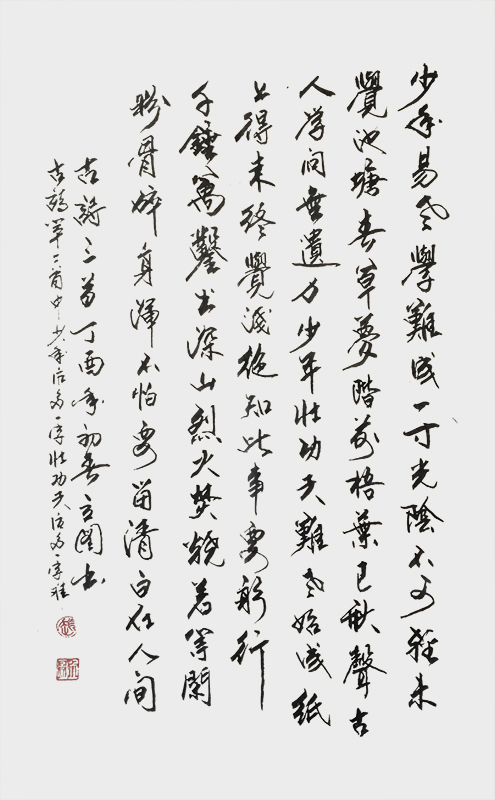 少年易老學難成一寸光陰不可輕未
覺池塘春草夢階前梧葉已秋聲古
人学问無遺力少年壮功夫難老始成紙
上得来终覺淺絶知此事要躬行
千錘萬鑿出深山烈火焚燒若等閑
粉骨碎身渾不怕要留清白在人间
古詩三首丁酉年初春立国书
古詩第二首中少年后多一字壮功夫后多一字難